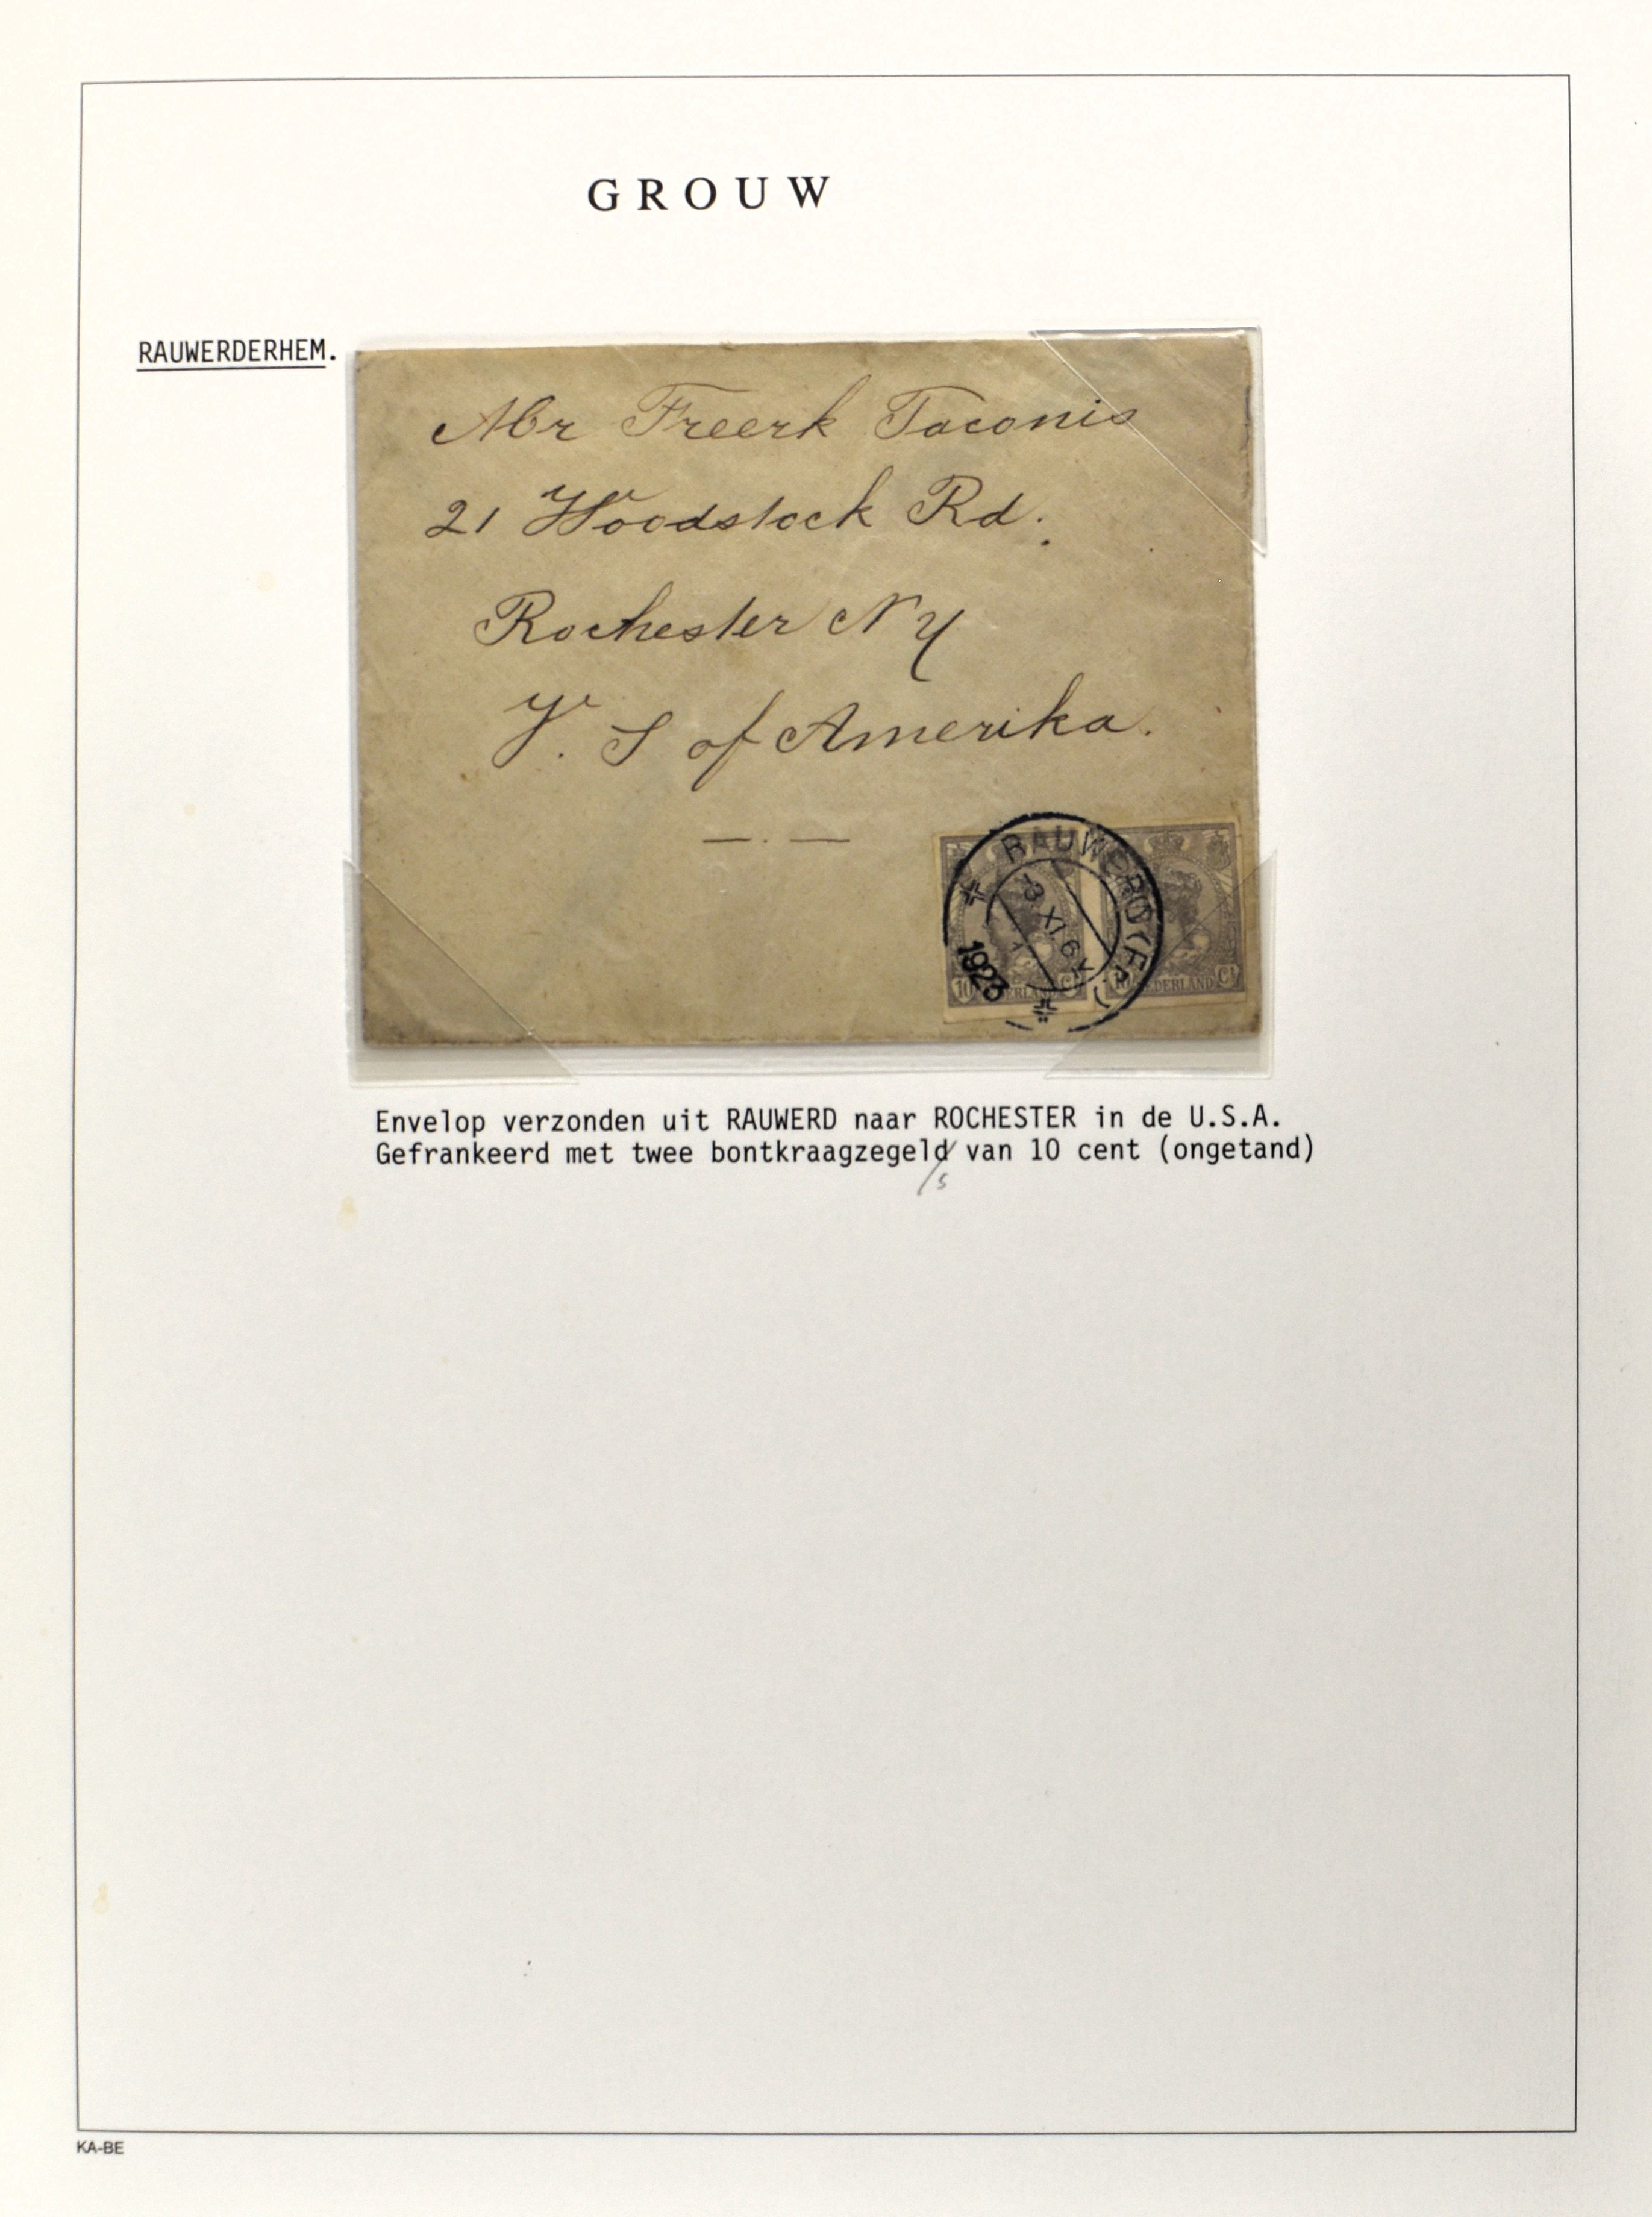 GROUW
RAUWERDERHEM.
Mr Freerk Taconis
21 Woodstock Rd.
Rochester NY
V. S of Amerika.
RAUWERD (FR)
3 XI 6
1923
10 NEDERLAND Ct
10 NEDERLAND Ct
Envelop verzonden uit RAUWERD naar ROCHESTER in de U.S.A.
Gefrankeerd met twee bontkraagzegeld van 10 cent (ongetand)
/s
KA-BE